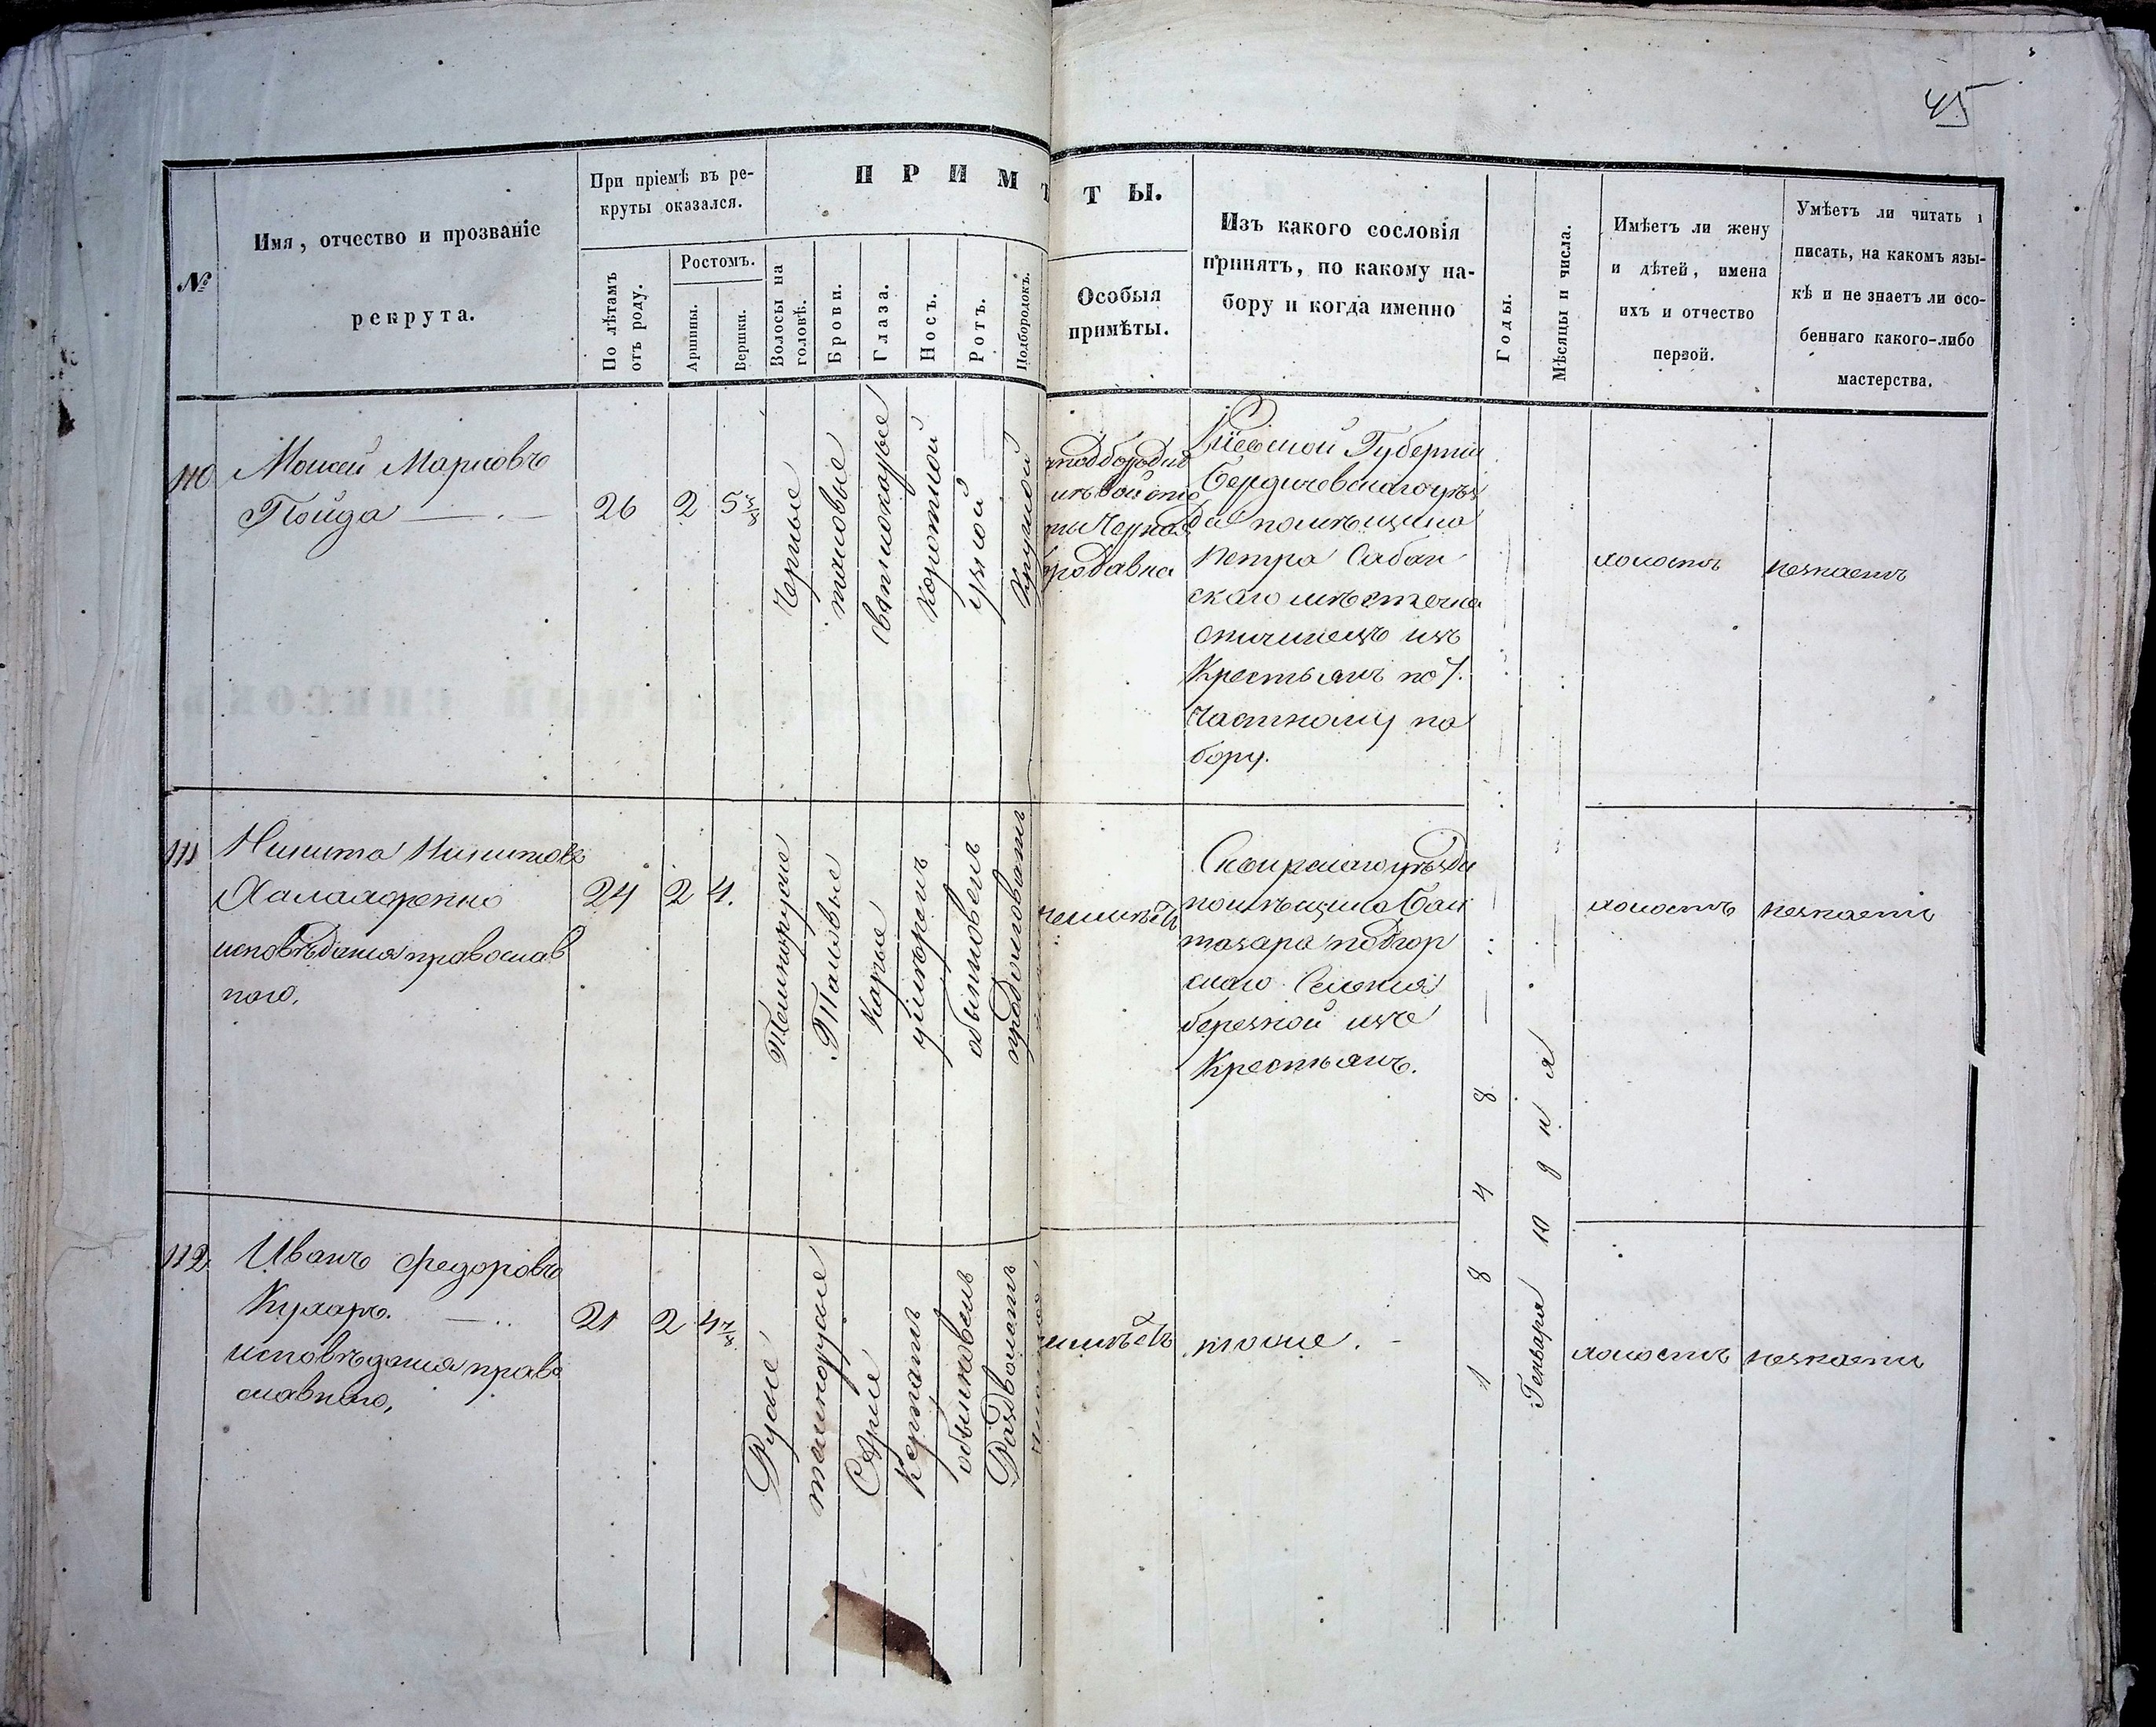 45
№
Имя, отчество и прозваніе
рекрута.
При пріемѣ въ ре-
круты оказался.
По лѣтамъ
отъ роду.
Ростомъ.
Аршины.
Вершки.
ПРИМѢ
Волосы на
головѣ.
Брови.
Глаза.
Носъ.
Ротъ.
Подбородокъ.
ТЫ.
Особыя
примѣты.
Изъ какого сословія
принятъ, по какому на-
бору и когда именно
Годы.
Мѣсяцы и числа.
Имѣетъ ли жену
и дѣтей, имена
ихъ и отчество
первой.
Умѣетъ ли читать и
писать, на какомъ язы-
кѣ и не знаетъ ли осо-
беннаго какого-либо
мастерства.
110
Моисей Марковъ
Пойда
26
2
5 3/8
черные
таковые
светлокарые
короткой
узкой
круглой
Черная
бродавка
Кіевской Губерніи
Бердичевскаго уѣз
да помѣщика
Петра Собан
скаго мѣстечка
Спичинецъ изъ
Крестьянъ по 7.
частному на
бору.
холостъ
незнаетъ
111
Никита Никитовъ
исповѣданія православ
наго.
24
2
4.
Темнорусые
Таковые
Карые
умѣренъ
обыкновенъ
продолговатъ
неимѣетъ
Сквирскаго уѣзда
помѣщика Бал
тазара Подгор
скаго Селенія
березной изъ
Крестьянъ.
холостъ
незнаетъ
112
Иванъ Федоровъ
Кухаръ.
исповѣданія право
славнаго,
21
2
4 7/8
Рудые
темнорусые
Серые
Керпатъ
обыкновенъ
Раздвоенъ
неимѣетъ
тоже.
1848
Генваря 10 дня
холостъ
незнаетъ